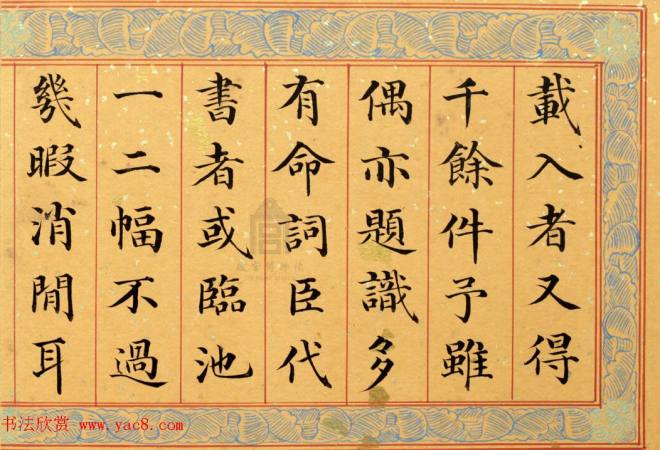 載入者又得
千餘件予雖
偶亦題識多
有命詞臣代
書者或臨池
一二幅不過
幾暇消閒耳
书法欣赏 www.yac8.com